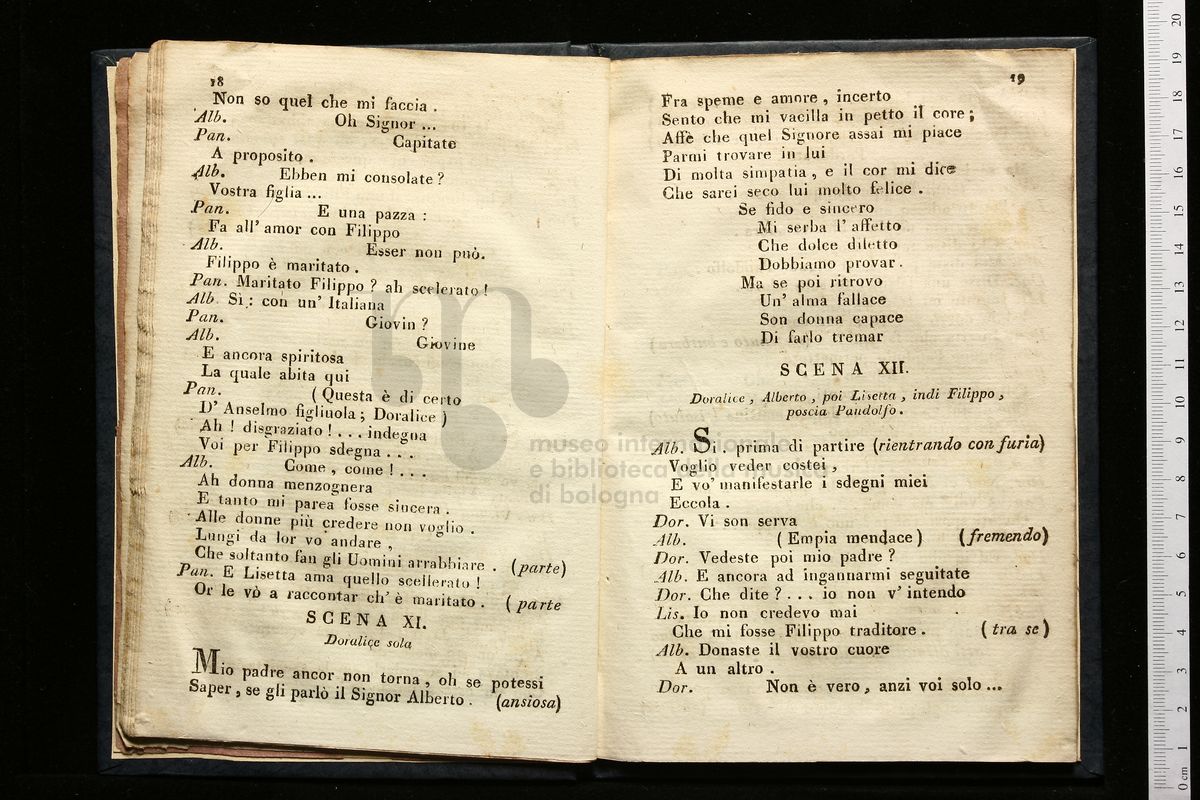 18
Non so quel che mi faccia .
Alb. Oh Signor ...
Pan. Capitate
A proposito .
Alb. Ebben mi consolate ?
Vostra figlia ...
Pan. E una pazza :
Fa all' amor con Filippo
Alb. Esser non può.
Filippo è maritato .
Pan. Maritato Filippo ? ah scelerato !
Alb. Sì : con un' Italiana
Pan. Giovin ?
Alb. Giovine
E ancora spiritosa
La quale abita qui
Pan. ( Questa è di certo
D' Anselmo figliuola ; Doralice )
Ah ! disgraziato ! . . . indegna
Voi per Filippo sdegna . . .
Alb. Come , come ! . . .
Ah donna menzognera
E tanto mi parea fosse sincera .
Alle donne più credere non voglio .
Lungi da lor vo' andare ,
Che soltanto fan gli Uomini arrabbiare . (parte)
Pan. E Lisetta ama quello scellerato !
Or le vò a raccontar ch' è maritato . ( parte
SCENA XI.
Doralice sola
Mio padre ancor non torna , oh se potessi
Saper , se gli parlò il Signor Alberto . (ansiosa)
19
Fra speme e amore , incerto
Sento che mi vacilla in petto il core ;
Affè che quel Signore assai mi piace
Parmi trovare in lui
Di molta simpatia , e il cor mi dice
Che sarei seco lui molto felice .
Se fido e sincero
Mi serba l' affetto
Che dolce diletto
Dobbiamo provar .
Ma se poi ritrovo
Un' alma fallace
Son donna capace
Di farlo tremar
SCENA XII.
Doralice , Alberto , poi Lisetta , indi Filippo ,
poscia Pandolfo .
Alb. Si . prima di partire (rientrando con furia)
Voglio veder costei ,
E vo' manifestarle i sdegni miei
Eccola .
Dor. Vi son serva
Alb. ( Empia mendace ) (fremendo)
Dor. Vedeste poi mio padre ?
Alb. E ancora ad ingannarmi seguitate
Dor. Che dite ? . . . io non v' intendo
Lis. Io non credevo mai
Che mi fosse Filippo traditore . ( tra se )
Alb. Donaste il vostro cuore
A un altro .
Dor. Non è vero , anzi voi solo ...
museo internazionale
e biblioteca della musica
di bologna
0 cm 1 2 3 4 5 6 7 8 9 10 11 12 13 14 15 16 17 18 19 20